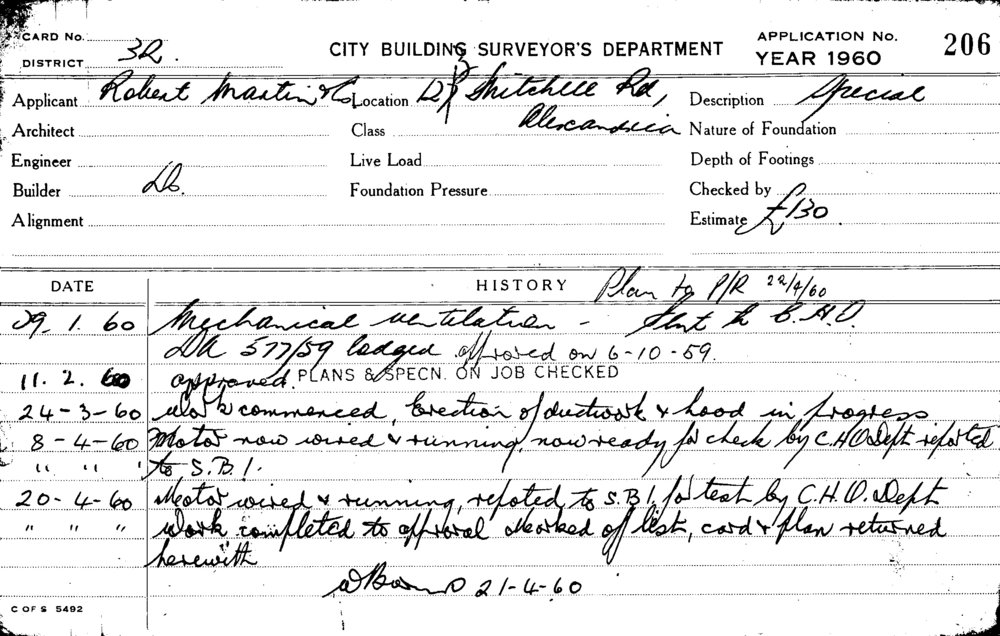 CARD No.
DISTRICT 32.
CITY BUILDING SURVEYOR'S DEPARTMENT
APPLICATION No. 206
YEAR 1960
Applicant Robert Martin & Co Location Mitchell Rd, Description Special
Architect Class Alexandria Nature of Foundation
Engineer Live Load Depth of Footings
Builder Do. Foundation Pressure Checked by
Alignment Estimate £130
DATE HISTORY Plan to P/R 22/4/60
29. 1. 60 Mechanical ventilation - Sent to C.H.O.
DA 577/59 lodged approved on 6-10-59.
11. 2. 60 approved. PLANS & SPECN. ON JOB CHECKED
24-3-60 Work commenced, Erection of ductwork & hood in progress
8-4-60 Motor now wired & running, now ready for check by C.H.O. Dept reported
" " " to S.B.I.
20-4-60 Motor wired & running, repoted to S.B.I. for test by C.H.O. Dept
" " " Work completed to approval Marked off list, card & plan returned
herewith
21-4-60
C OF S 5492